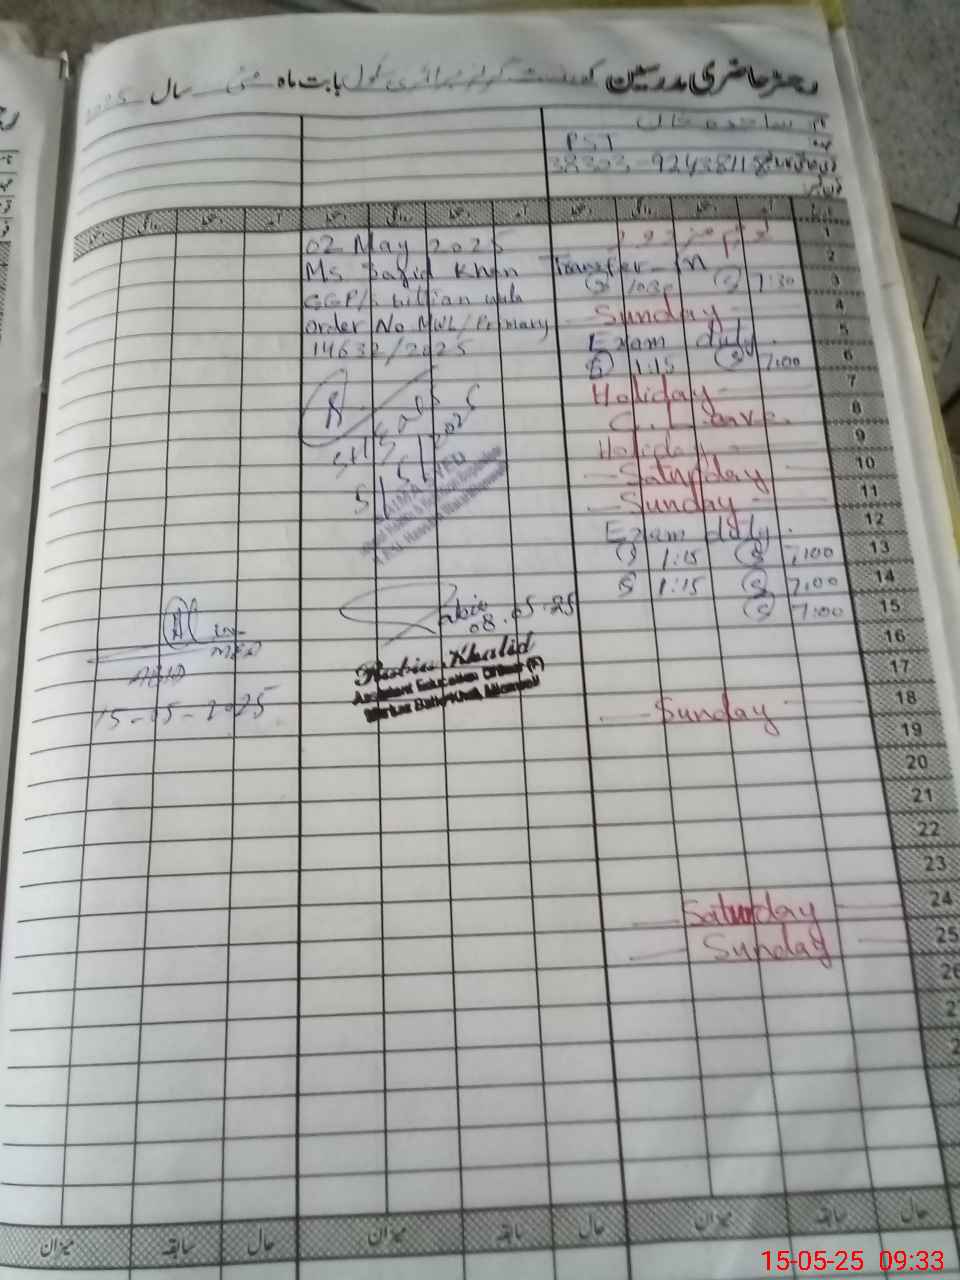 رجسٹر حاضری مدرسین گورنمنٹ گرلز پرائمری سکول بابت ماہ مئی سال 2025
نام ساجدہ خان
عہدہ PST
38303-9243811-8
02 May 2025
Ms Sajid Khan Transfer in
GGP/S
order No MWL/Primary
14632/2025
1 یوم مزدور
2
3 10:30 7:30
4 Sunday
5 Exam duty.
6 1:15 7:00
7 Holiday
8 C. Leave.
9 Holiday
10 Saturday
11 Sunday
12 Exam duty.
13 1:15 7:00
14 1:15 7:00
15 7:00
16
17
18 Sunday
19
20
21
22
23
24 Saturday
25 Sunday
26
Rabia
08.05.25
Rabia Khalid
Assistant Education Officer (F)
15-05-2025
میزان سابقہ حال میزان سابقہ حال میزان سابقہ حال
15-05-25 09:33